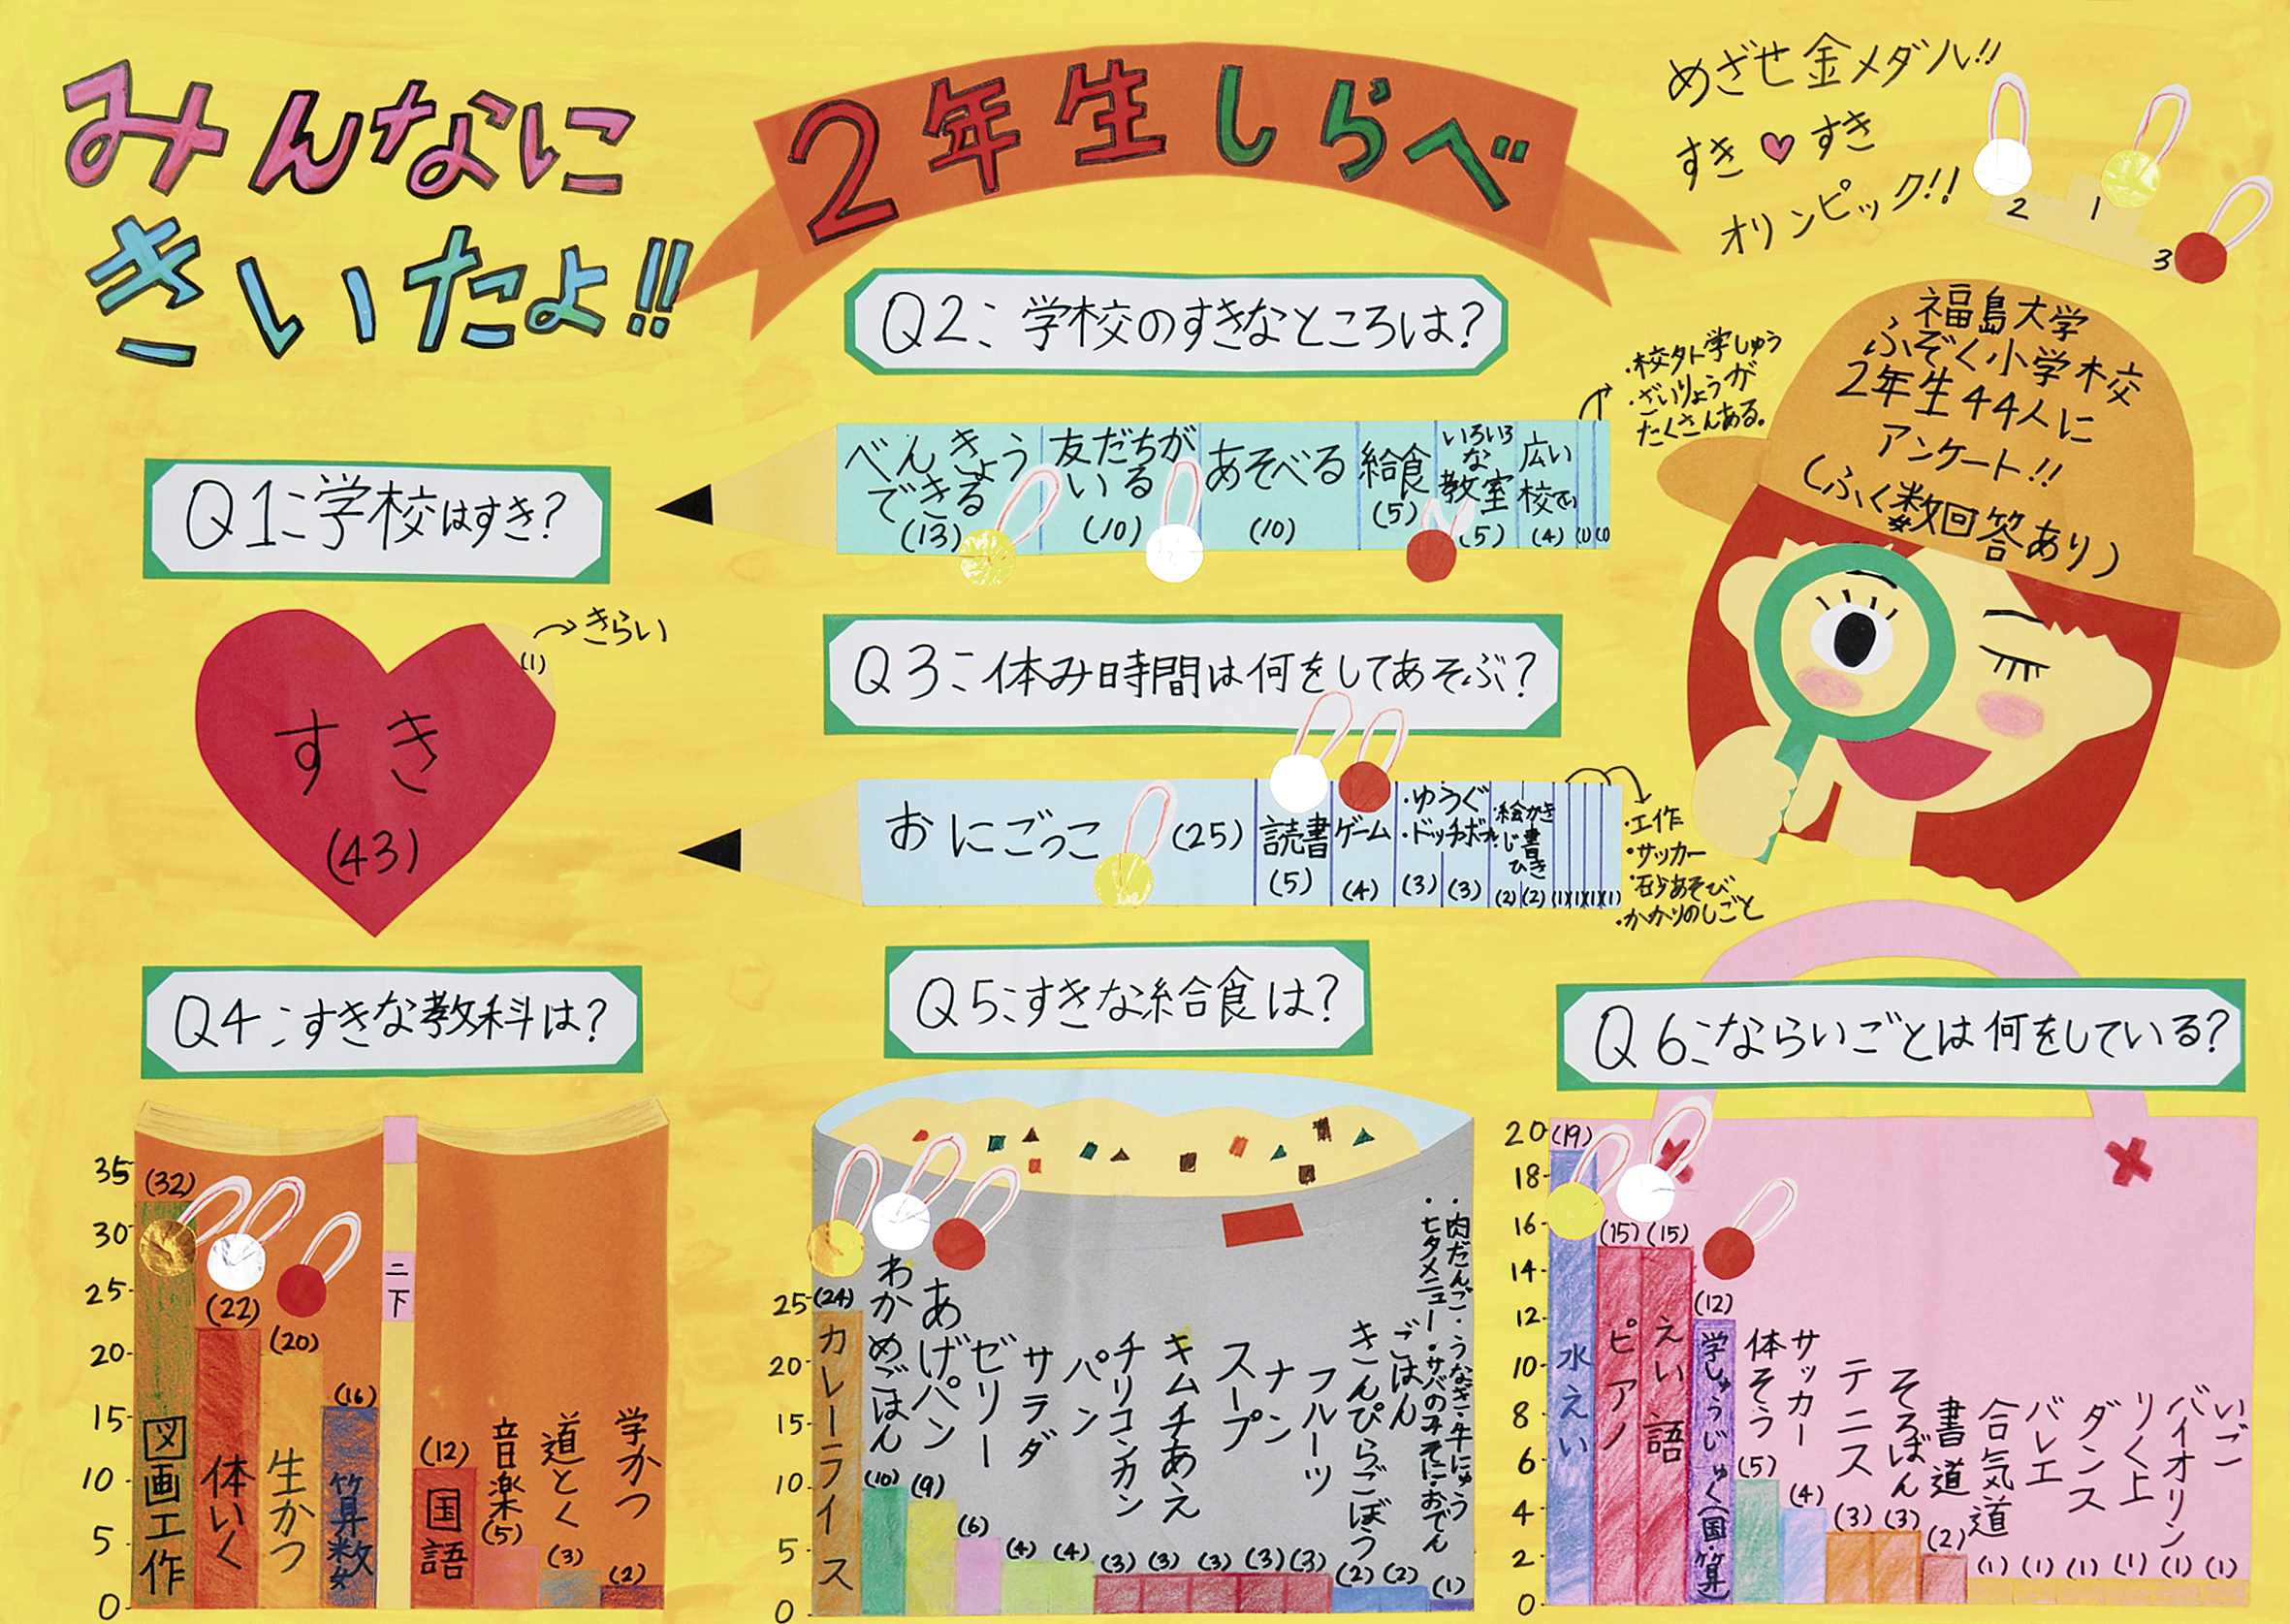 みんなに
きいたよ!!
2年生しらべ
めざせ金メダル!!
すき♥すき
オリンピック!!
2
1
3
福島大学
ふぞく小学校
2年生44人に
アンケート!!
(ふく数回答あり)
Q1:学校はすき?
すき
(43)
きらい
(1)
Q2:学校のすきなところは?
べんきょう
できる
(13)
友だちが
いる
(10)
あそべる
(10)
給食
(5)
いろいろ
な
教室
(5)
広い
校てい
(4)
(1)
(1)
・校外学しゅう
・ざいりょうが
たくさんある。
Q3:休み時間は何をしてあそぶ?
おにごっこ
(25)
読書
(5)
ゲーム
(4)
・ゆうぐ
・ドッチボール
(3)
(3)
・絵かき
・じ書ひき
(2)
(2)
(1)
(1)
(1)
(1)
・工作
・サッカー
・砂あそび
・かかりのしごと
Q4:すきな教科は?
35
30
25
20
15
10
5
0
(32)
図画工作
(22)
体いく
(20)
生かつ
(16)
算数
二下
(12)
国語
音楽
(5)
道とく
(3)
学かつ
(2)
Q5:すきな給食は?
25
20
15
10
5
0
(24)
カレーライス
わかめごはん
(10)
あげパン
(9)
ゼリー
(6)
サラダ
(4)
パン
(4)
チリコンカン
(3)
キムチあえ
(3)
スープ
(3)
ナン
(3)
フルーツ
(3)
きんぴらごぼう
(2)
ごはん
(2)
・肉だんご・うなぎ・牛にゅう
・七夕メニュー・サバのみそに・おでん
(1)
Q6:ならいごとは何をしている?
20
18
16
14
12
10
8
6
4
2
0
(19)
水えい
(15)
ピアノ
(15)
えい語
(12)
学しゅうじゅく(国・算)
体そう
(5)
サッカー
(4)
テニス
(3)
そろばん
(3)
書道
(2)
合気道
(1)
バレエ
(1)
ダンス
(1)
りく上
(1)
バイオリン
(1)
いご
(1)